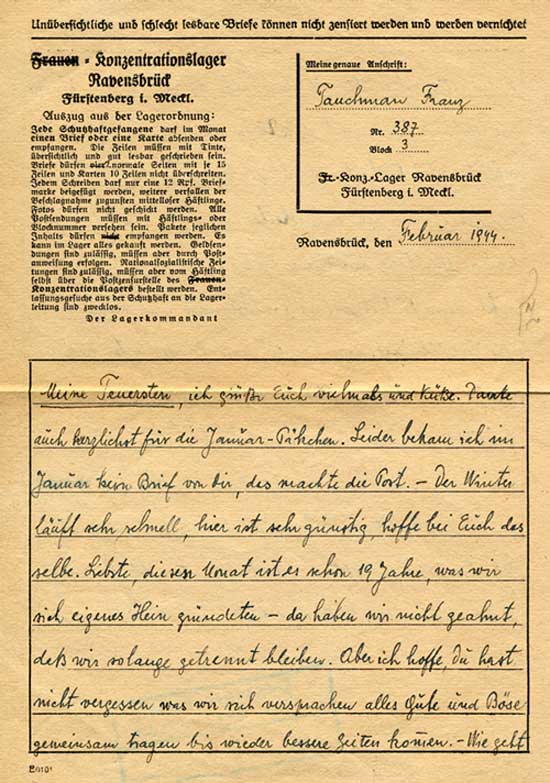 Unübersichtliche und schlecht lesbare Briefe können nicht zensiert werden und werden vernichtet
Frauen - Konzentrationslager
Ravensbrück
Fürstenberg i. Meckl.
Auszug aus der Lagerordnung:
Jede Schutzhaftgefangene darf im Monat
einen Brief oder eine Karte absenden oder
empfangen. Die Zeilen müssen mit Tinte,
übersichtlich und gut lesbar geschrieben sein.
Briefe dürfen vier normale Seiten mit je 15
Zeilen und Karten 10 Zeilen nicht überschreiten.
Jedem Schreiben darf nur eine 12 Rpf. Brief-
marke beigefügt werden, weitere verfallen der
Beschlagnahme zugunsten mittelloser Häftlinge.
Fotos dürfen nicht geschickt werden. Alle
Postsendungen müssen mit Häftlings- oder
Blocknummer versehen sein. Pakete jeglichen
Inhalts dürfen nicht empfangen werden. Es
kann im Lager alles gekauft werden. Geldsen-
dungen sind zulässig, müssen aber durch Post-
anweisung erfolgen. Nationalsozialistische Zei-
tungen sind zulässig, müssen aber vom Häftling
selbst über die Postzensurstelle des Frauen-
Konzentrationslagers bestellt werden. Ent-
lassungsgesuche aus der Schutzhaft an die Lager-
leitung sind zwecklos.
Der Lagerkommandant
Meine genaue Anschrift:
Tauchman Franz
Nr. 387
Block 3
Fr.-Konz.-Lager Ravensbrück
Fürstenberg i. Meckl.
Ravensbrück, den Februar 1944.
Meine Teuersten, ich grüße Euch vielmals und Küße. Danke
auch herzlichst für die Januar-Päkchen. Leider bekam ich im
Januar kein Brief von dir, das machte die Post. - Der Winter
läuft sehr schnell, hier ist sehr günstig, hoffe bei Euch das
selbe. Liebste, diesen Monat ist es schon 19 Jahre, was wir
sich eigenes Hein gründeten - da haben wir nicht geahnt,
daß wir solange getrennt bleiben. Aber ich hoffe, du hast
nicht vergessen was wir sich versprachen alles Gute und Böse
gemeinsam tragen bis wieder bessere Zeiten komen. - Wie geht